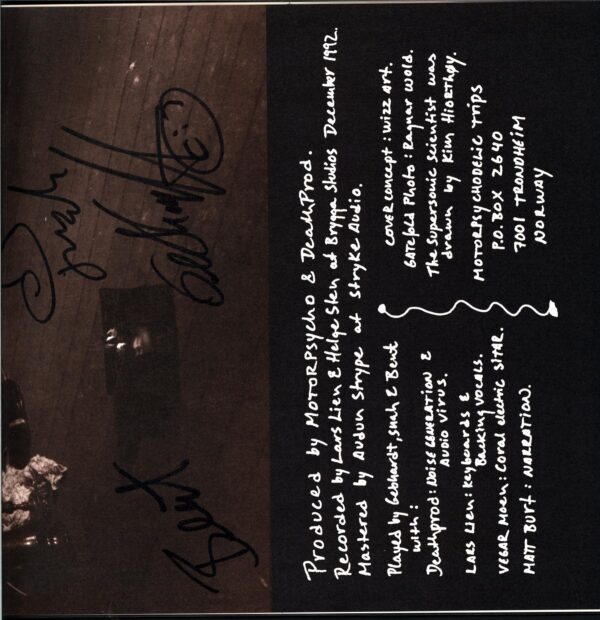 Produced by MOTORPSYCHO & DeathProd.
Recorded by Lars Lien & Helge Sten at Brygga Studios December 1992.
Mastered by Audun Strype at Stryke Audio.
Played by Gebhardt, Snah & Bent
with:
Deathprod: NOISE GENERATION &
AUDIO VIRUS.
LARS LIEN: Keyboards &
Backing VOCALS.
VEGAR MOEN: CORAL electric SITAR.
MATT BURT: NARRATION.
COVER CONCEPT: WIZZ ART.
GATEfold PHOTO: Ragnar Wold.
The Supersonic Scientist was
drawn by Kim Hiorthøy.
MOTORPSYCHODELIC TRIPS
P.O. BOX 2640
7001 TRONDHEIM
NORWAY
Bent
Snah
Gebhardt